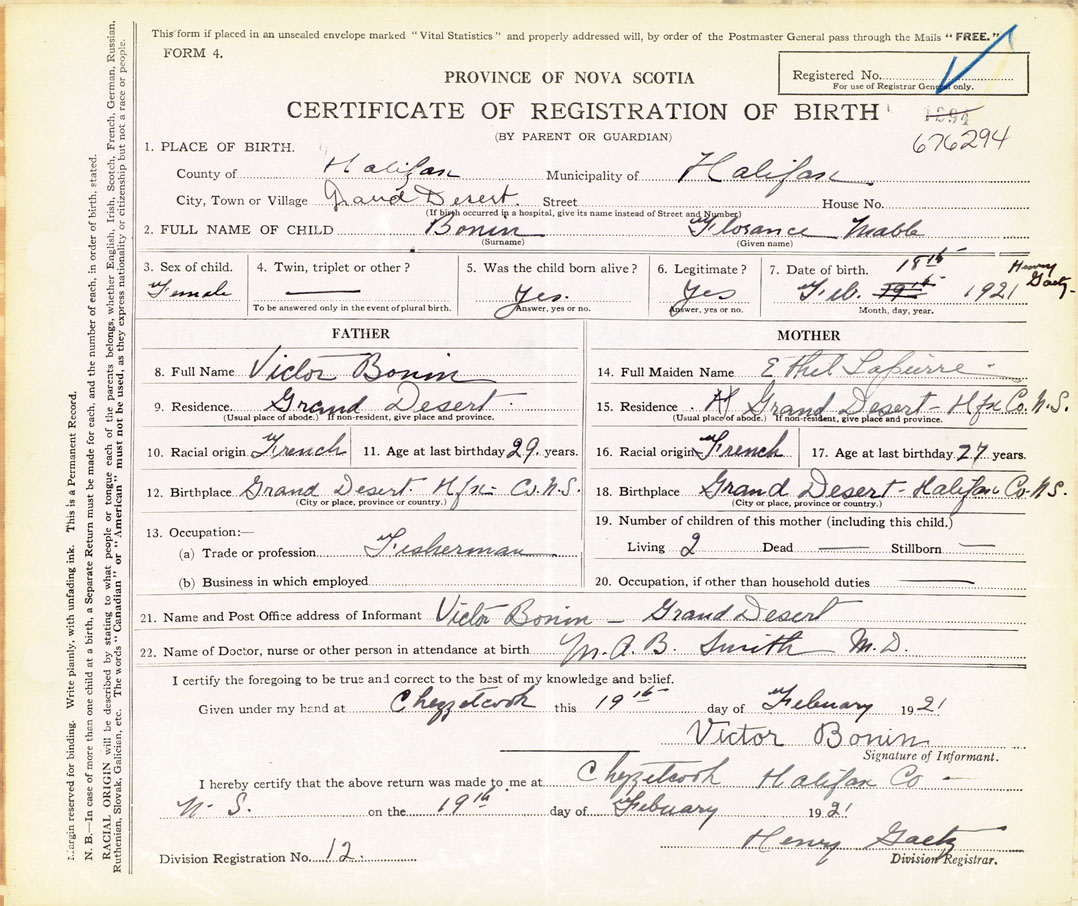 This form if placed in an unsealed envelope marked "Vital Statistics" and properly addressed will, by order of the Postmaster General pass through the Mails "FREE."
FORM 4.
PROVINCE OF NOVA SCOTIA
Registered No.
For use of Registrar General only.
CERTIFICATE OF REGISTRATION OF BIRTH
(BY PARENT OR GUARDIAN)
676294
1. PLACE OF BIRTH.
County of Halifax Municipality of Halifax
City, Town or Village Grand Desert. Street House No.
(If birth occurred in a hospital, give its name instead of Street and Number)
2. FULL NAME OF CHILD Bonin Florance Mable
(Surname) (Given name)
3. Sex of child. Female
4. Twin, triplet or other? —
To be answered only in the event of plural birth.
5. Was the child born alive? Yes.
Answer, yes or no.
6. Legitimate? Yes
Answer, yes or no.
7. Date of birth. 18th
Feb. 19th 1921 Henry Gaetz
Month, day, year.
FATHER
8. Full Name Victor Bonin
9. Residence. Grand Desert.
(Usual place of abode.) If non-resident, give place and province.
10. Racial origin French 11. Age at last birthday 29. years.
12. Birthplace Grand Desert. Hfx- Co. N.S.
(City or place, province or country.)
13. Occupation:—
(a) Trade or profession Fisherman
(b) Business in which employed
MOTHER
14. Full Maiden Name Ethel Lapierre
15. Residence H Grand Desert- Hfx Co. N.S.
(Usual place of abode.) If non-resident, give place and province.
16. Racial origin French 17. Age at last birthday 27 years.
18. Birthplace Grand Desert- Halifax Co. N.S.
(City or place, province or country.)
19. Number of children of this mother (including this child.)
Living 2 Dead — Stillborn —
20. Occupation, if other than household duties —
21. Name and Post Office address of Informant Victor Bonin – Grand Desert
22. Name of Doctor, nurse or other person in attendance at birth M. A. B. Smith M.D.
I certify the foregoing to be true and correct to the best of my knowledge and belief.
Given under my hand at Chezzetcook this 19th day of Febuary 1921
Victor Bonin
Signature of Informant.
I hereby certify that the above return was made to me at Chezzetcook Halifax Co –
N. S. on the 19th day of Febuary 1921
Henry Gaetz
Division Registrar.
Division Registration No. 12.
Margin reserved for binding. Write plainly, with unfading ink. This is a Permanent Record.
N. B.—In case of more than one child at a birth, a Separate Return must be made for each, and the number of each, in order of birth, stated.
RACIAL ORIGIN will be described by stating to what people or tongue each of the parents belongs, whether English, Irish, Scotch, French, German, Russian,
Ruthenian, Slovak, Galician, etc. The words "Canadian" or "American" must not be used, as they express nationality or citizenship but not a race or people.